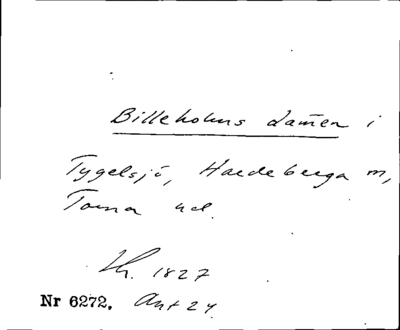 Billeholms damen i
Tygelsjö, Hardeberga m,
Torna hd.
Lh. 1827
Nr 6272. Ant 24